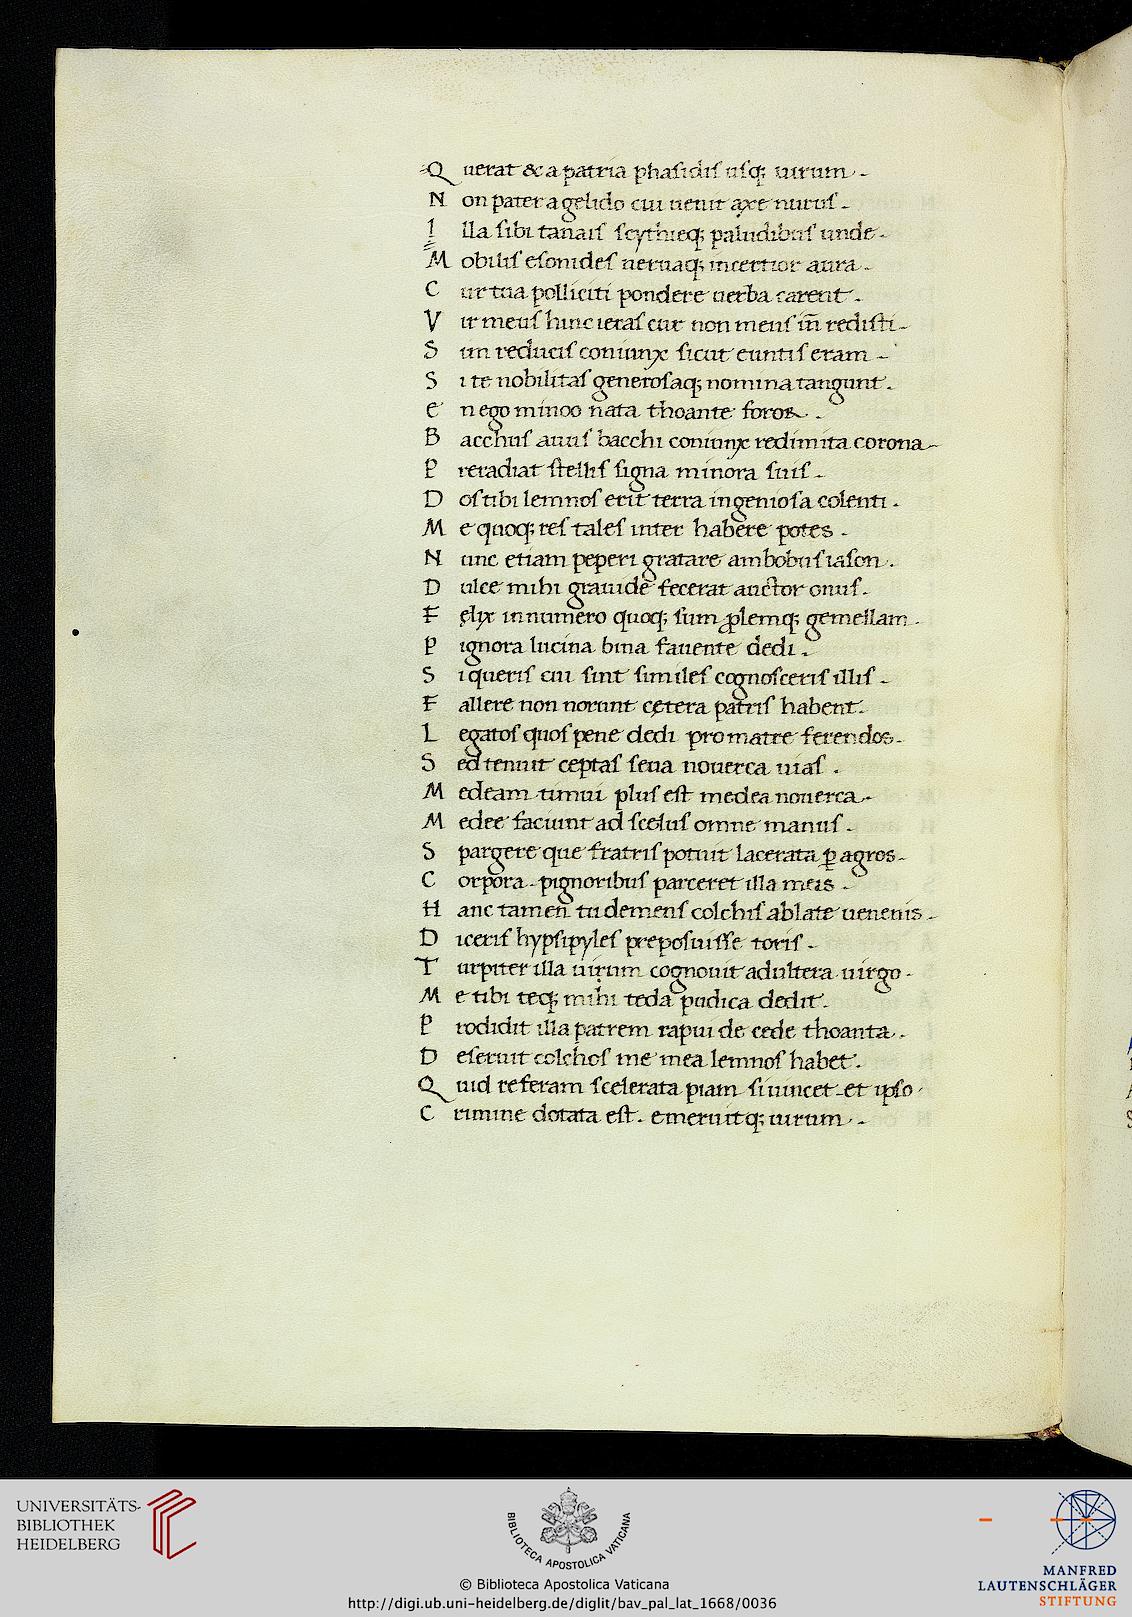 Q uerat & a patria phasidis usq; uirum .
N on pater a gelido cui uenit axe nurus .
I lla sibi tanais scythieq; paludibus unde .
M obilis esonides ueruaq; incertior aura .
C ur tua polliciti pondere uerba carent .
V ir meus hinc ieras cur non meus in̄ redisti .
S im reducis coniunx sicut euntis eram .
S i te nobilitas generosaq; nomina tangunt .
E n ego minoo nata thoante feror .
B acchus auus bacchi coniunx redimita corona .
P reradiat stellis signa minora suis .
D os tibi lemnos erit terra ingeniosa colenti .
M e quoq; res tales inter habere potes .
N unc etiam peperi gratare ambobus iason .
D ulce mihi grauide fecerat auctor onus .
F elix in numero quoq; sum ꝓlemq; gemellam .
P ignora lucina bina fauente dedi .
S i queris cui sint similes cognosceris illis .
F allere non norunt cętera patris habent .
L egatos quos pene dedi pro matre ferendos .
S ed tenuit ceptas seua nouerca uias .
M edeam timui plus est medea nouerca .
M edee faciunt ad scelus omne manus .
S pargere que fratris potuit lacerata ꝑ agros .
C orpora . pignoribus parceret illa meis .
H anc tamen tu demens colchis ablate uenenis .
D iceris hypsipyles preposuisse toris .
T urpiter illa uirum cognouit adultera uirgo .
M e tibi teq; mihi teda pudica dedit .
P rodidit illa patrem rapui de cede thoanta .
D eseruit colchos me mea lemnos habet .
Q uid referam scelerata piam si uincet . et ipso .
C rimine dotata est . emeruitq; uirum .
UNIVERSITÄTS-
BIBLIOTHEK
HEIDELBERG
BIBLIOTECA APOSTOLICA VATICANA
MANFRED
LAUTENSCHLÄGER
STIFTUNG
© Biblioteca Apostolica Vaticana
http://digi.ub.uni-heidelberg.de/diglit/bav_pal_lat_1668/0036